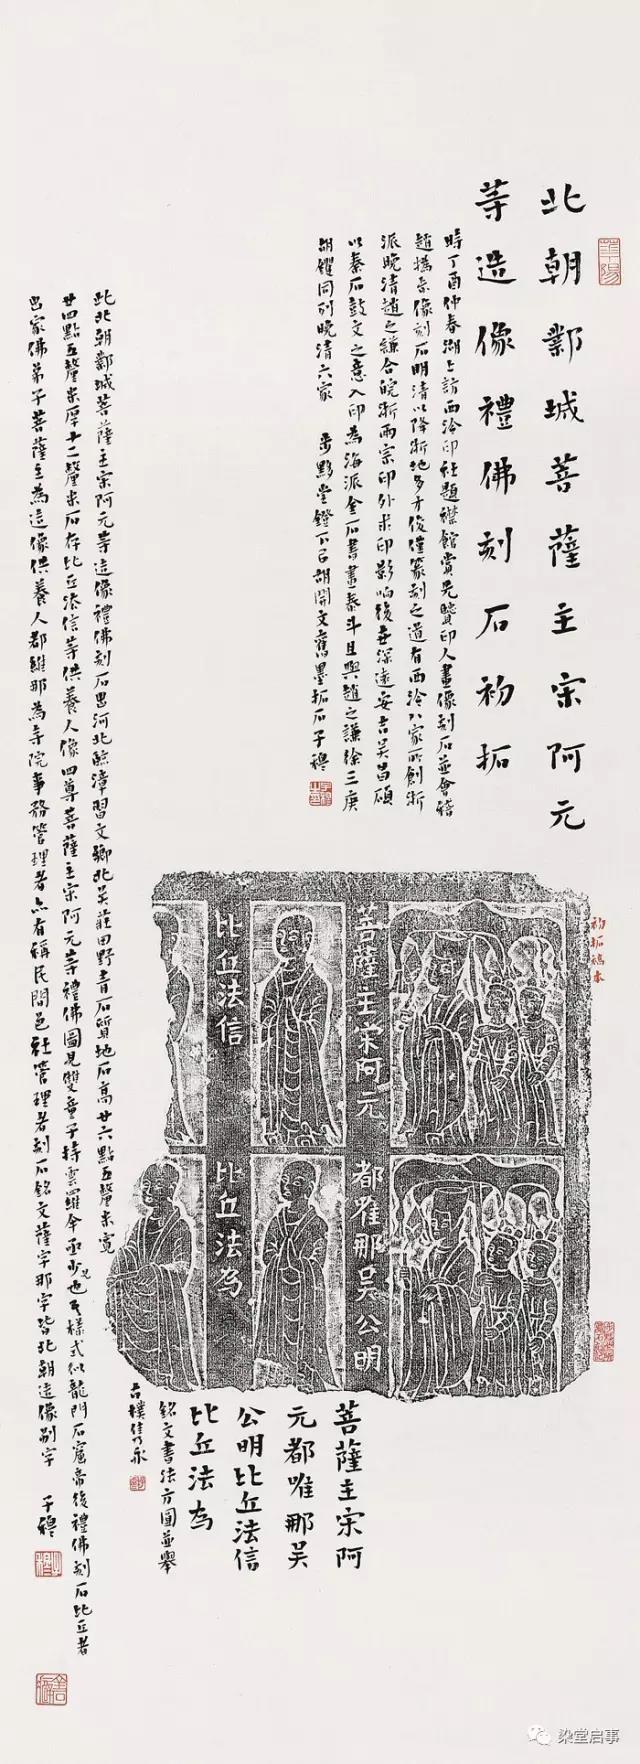 北朝鄴城菩薩主宋阿元
等造像禮佛刻石初拓
時丁酉仲春湖上訪西泠印社題襟館賞先賢印人畫像刻石並會稽
趙撝叔像刻石明清以降浙地多才俊僅篆刻之道有西泠八家所創浙
派晚清趙之謙合皖浙兩宗印外求印影响後世深遠安吉吴昌碩
以秦石鼓文之意入印為海派金石書畫泰斗且與趙之謙徐三庚
胡钁同列晚清六家 步黟堂鐙下呂胡開文舊墨拓石子穆
初拓稿本
菩薩主宋阿元
都唯那吴公明
比丘法信
比丘法為
菩薩主宋阿
元都唯那吴
公明比丘法信
比丘法為
銘文書法方圓並舉
古樸隹永
此北朝鄴城菩薩主宗阿元等造像禮佛刻石出河北臨漳習文鄉北吴莊田野青石質地石高廿六點五釐米寬
廿四點五釐米厚十二釐米石存比丘法信等供養人像四尊菩薩主宗阿元等禮佛圖見雙童子持雲羅傘丞少見也其樣式似龍門石窟帝後禮佛刻石比丘者
出家佛弟子菩薩主為造像供養人都維那為寺院事務管理者亦有稱民間邑社管理者刻石銘文薩字那字皆北朝造像别字 子穆
染堂启事